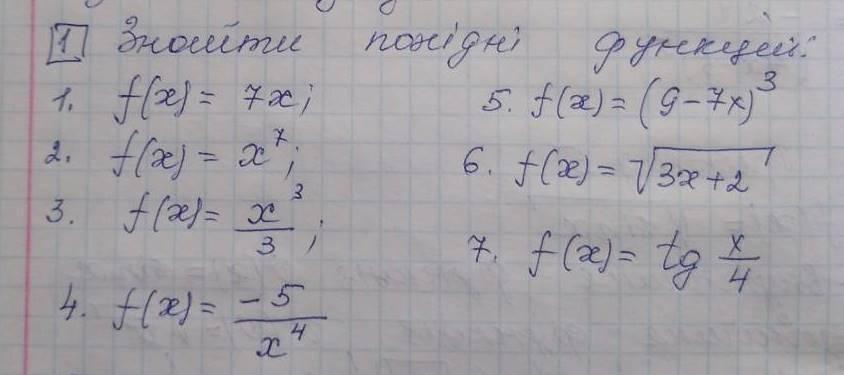 1 Знайти похідні функцій:
1. f(x) = 7x;
2. f(x) = x⁷;
3. f(x) = x³/3;
4. f(x) = -5/x⁴
5. f(x) = (9-7x)³
6. f(x) = √(3x+2)
7. f(x) = tg x/4